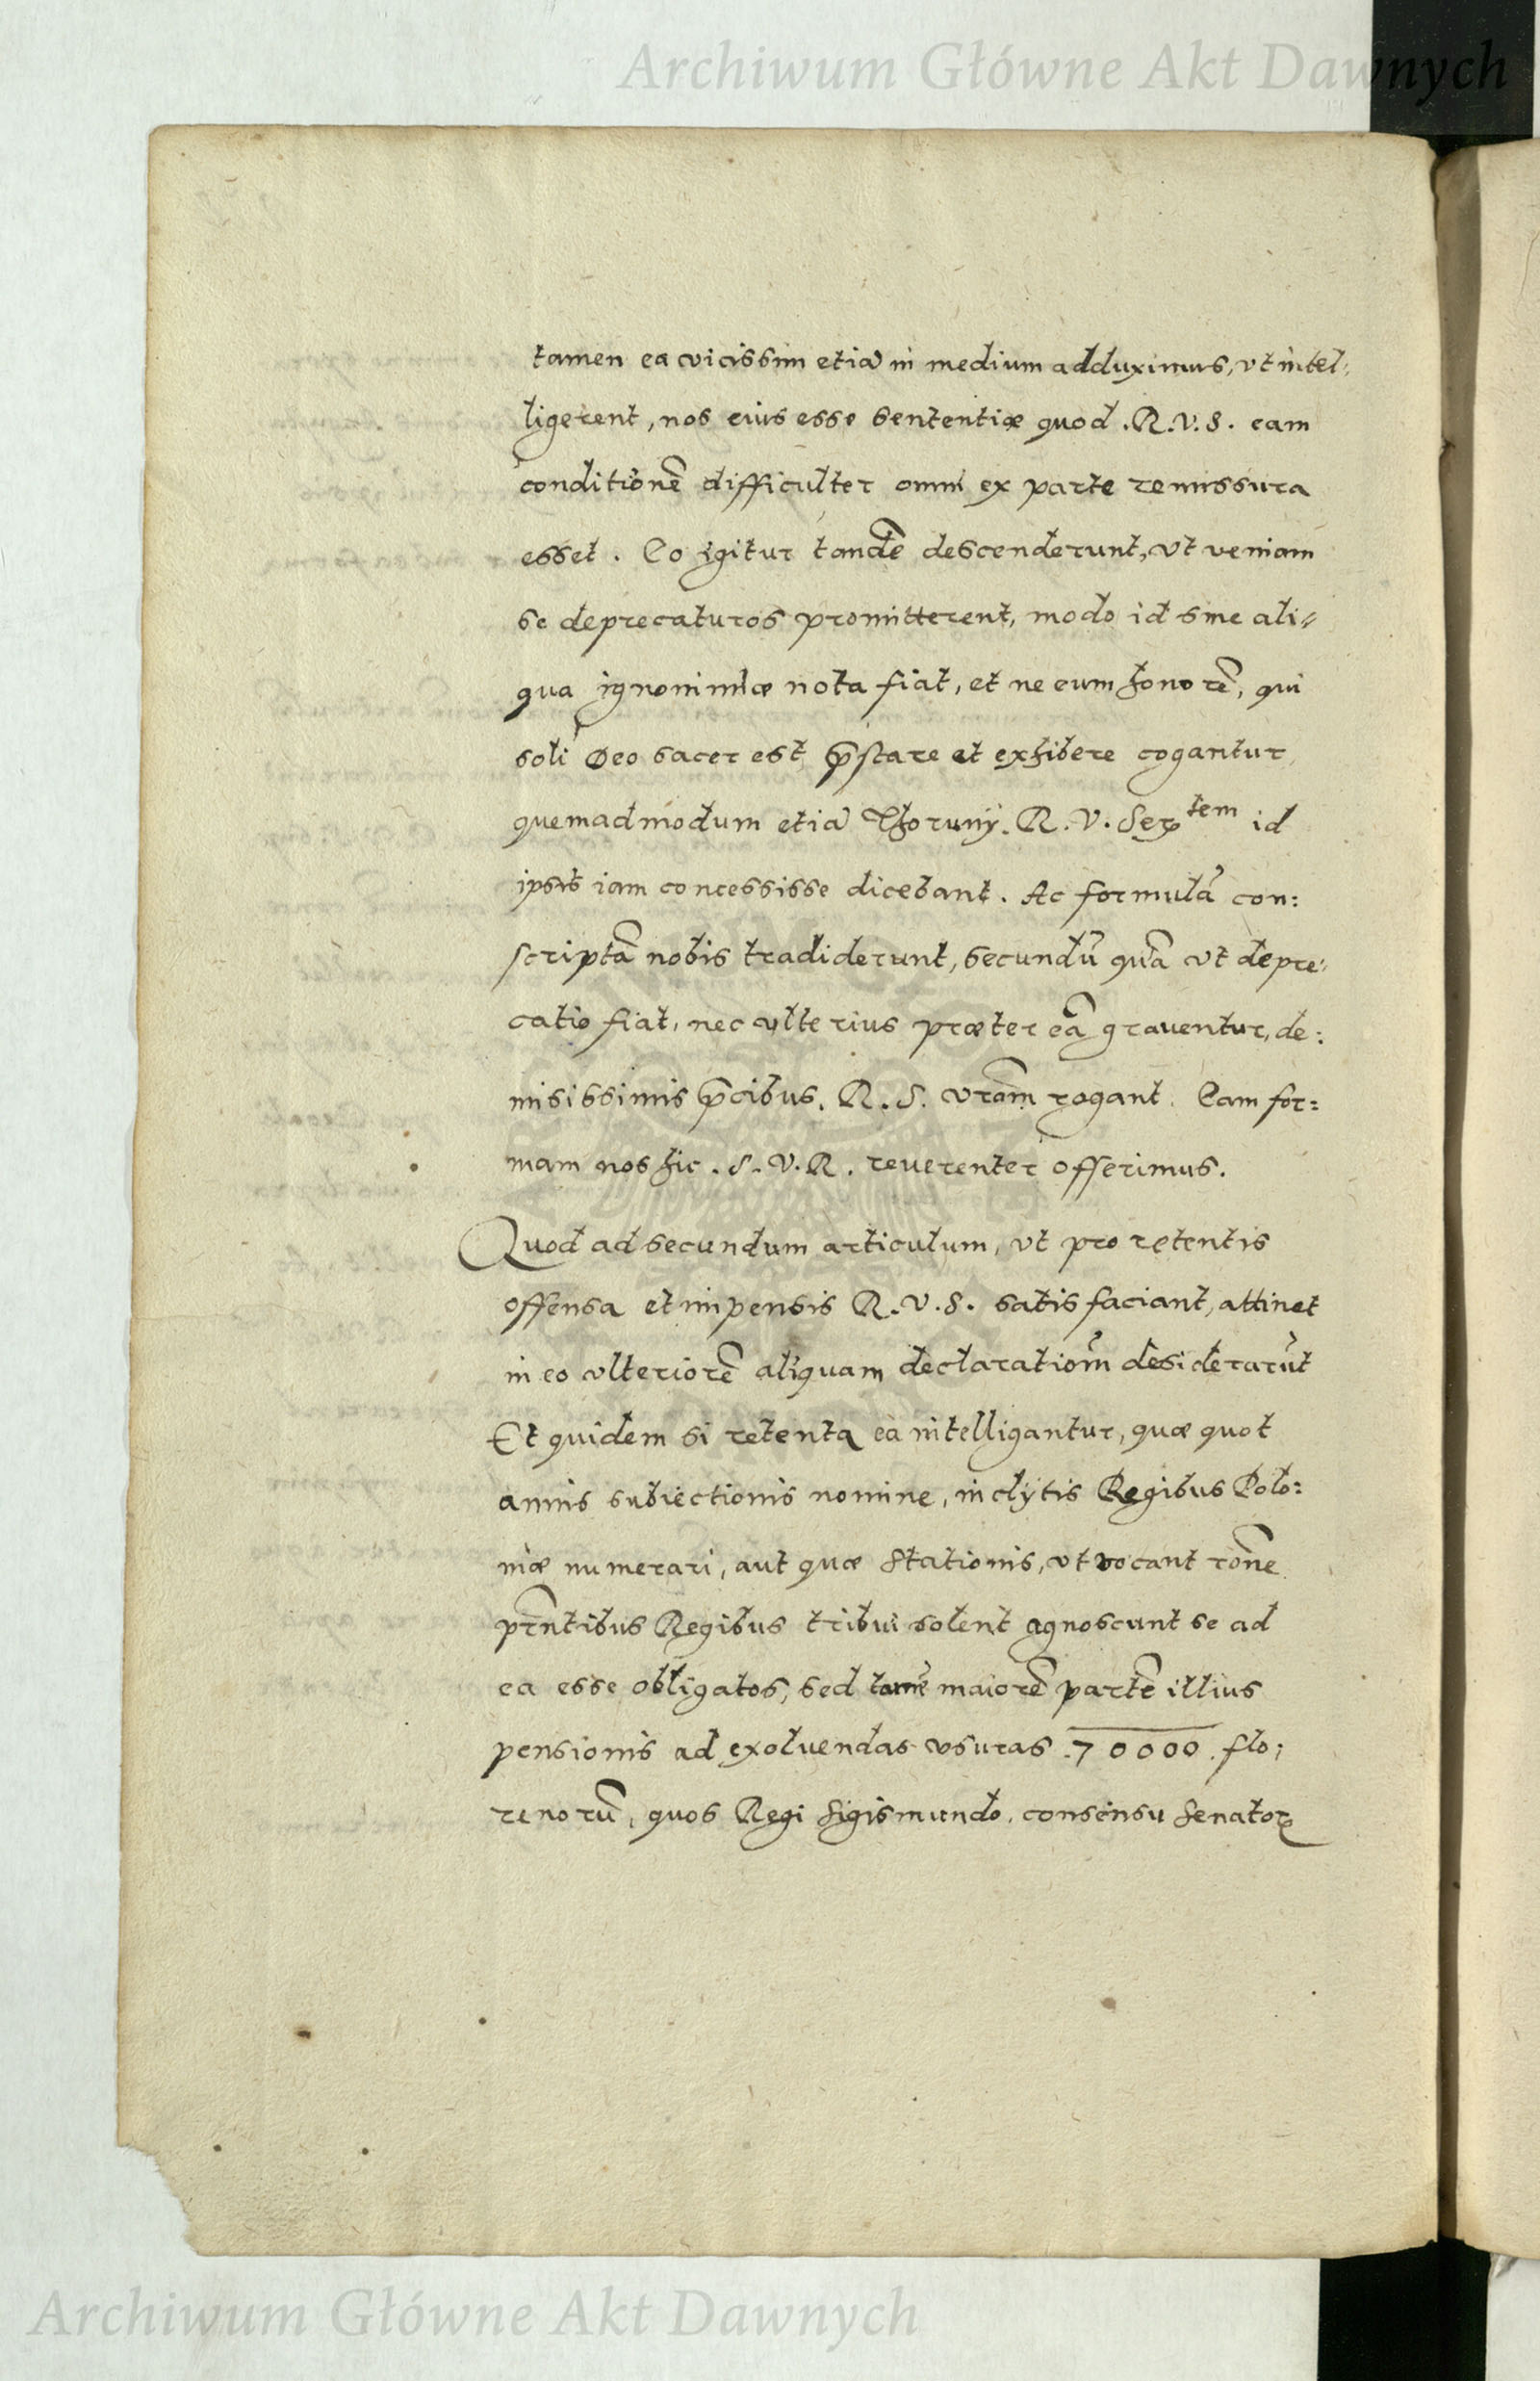 Archiwum Główne Akt Dawnych
tamen ea vicissim etiā in medium adduximus, vt intel,
ligerent, nos eius esse sententiæ quod .R.V.S. eam
conditionē difficulter omni ex parte remissura
esset. Eo igitur tandē descenderunt, vt veniam
se deprecaturos promitterent, modo id sine ali=
qua ignominiæ nota fiat, et ne eum honorē, qui
soli Deo sacer est, p̄stare et exhibere cogantur,
quemadmodum etiā Thoruny. R.V. Serᵗᵉᵐ id
ipsis iam concessisse dicebant. Ac formulā con:
scriptā nobis tradiderunt, secundū quā vt depre,
catio fiat, nec vlterius præter eā grauentur, de:
misissimis p̄cibus. R.S. vrām rogant. Eam for=
mam nos hic .S.V.R. reuerenter offerimus.
Quod ad secundum articulum, vt pro retentis
offensa et impensis R.V.S. satisfaciant, attinet
in eo vlteriorē aliquam declarationm̄ desiderarūt
Et quidem si retenta ea intelligantur, quæ quot
annis subiectionis nomine, inclytis Regibus Polo:
niæ numerari, aut quæ Stationis, vt vocant rōne
prn̄tibus Regibus tribui solent agnoscunt se ad
ea esse obligatos, sed tamē maiorē partē illius
pensionis ad exoluendas vsuras .70000. flo;
renorū, quos Regi Sigismundo, consensu Senatorꝝ
Archiwum Główne Akt Dawnych